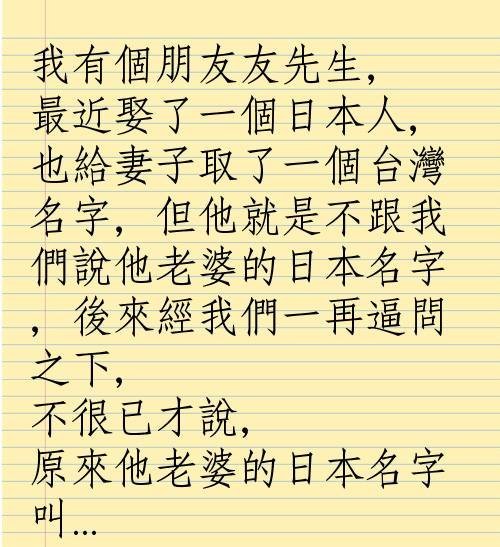 我有個朋友友先生,
最近娶了一個日本人,
也給妻子取了一個台灣
名字, 但他就是不跟我
們說他老婆的日本名字
, 後來經我們一再逼問
之下,
不很已才說,
原來他老婆的日本名字
叫...